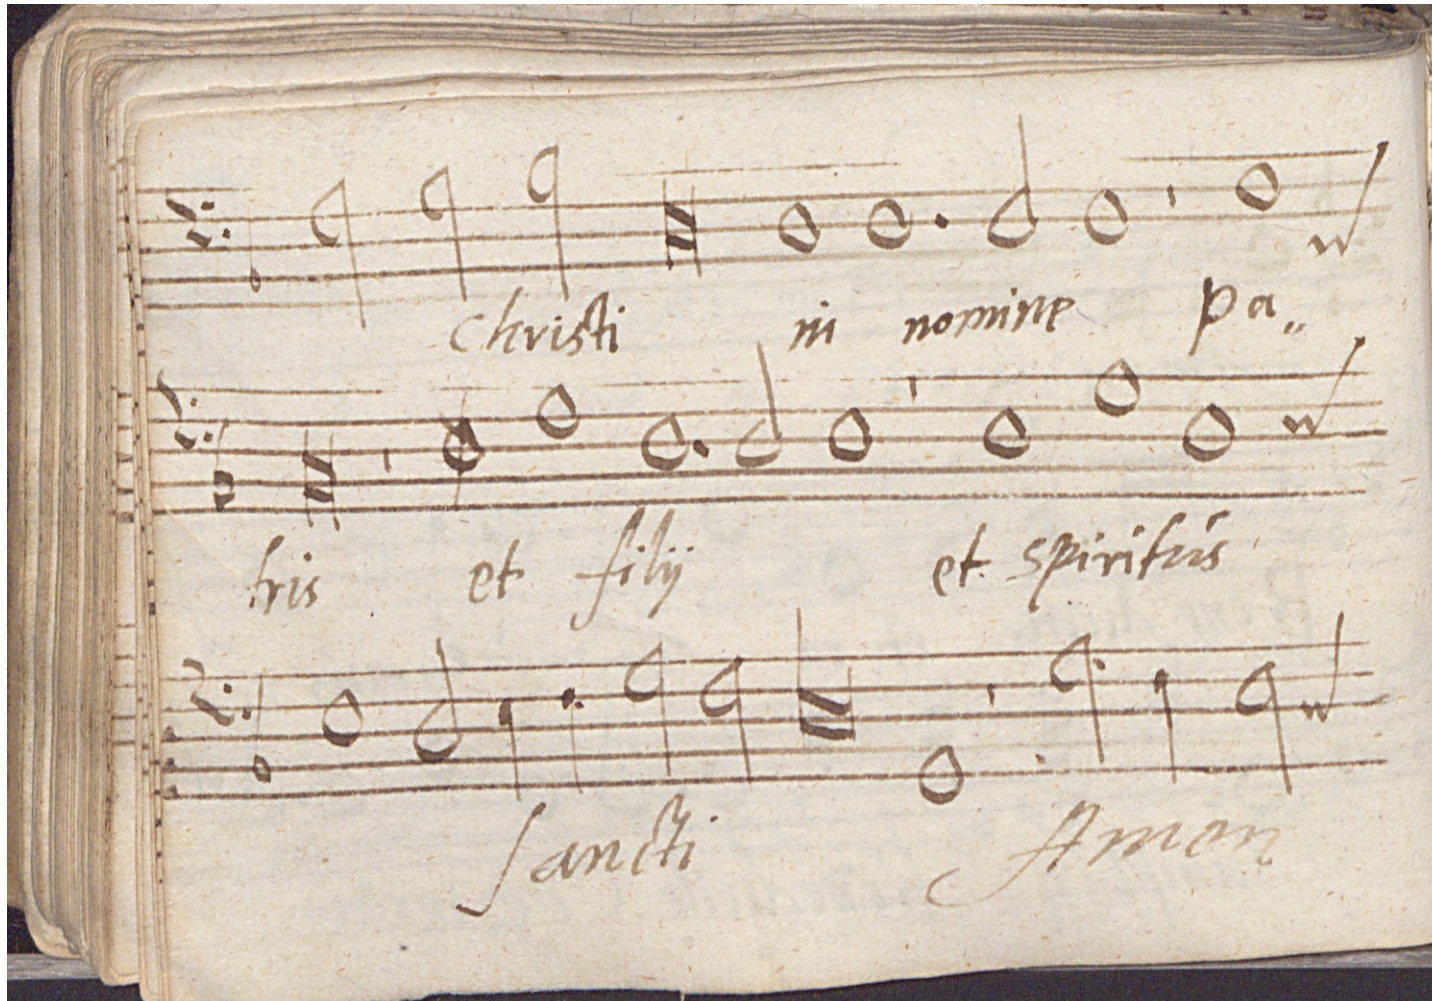 Christi in nomine pa„
tris et filij et spiritus
Sancti Amen